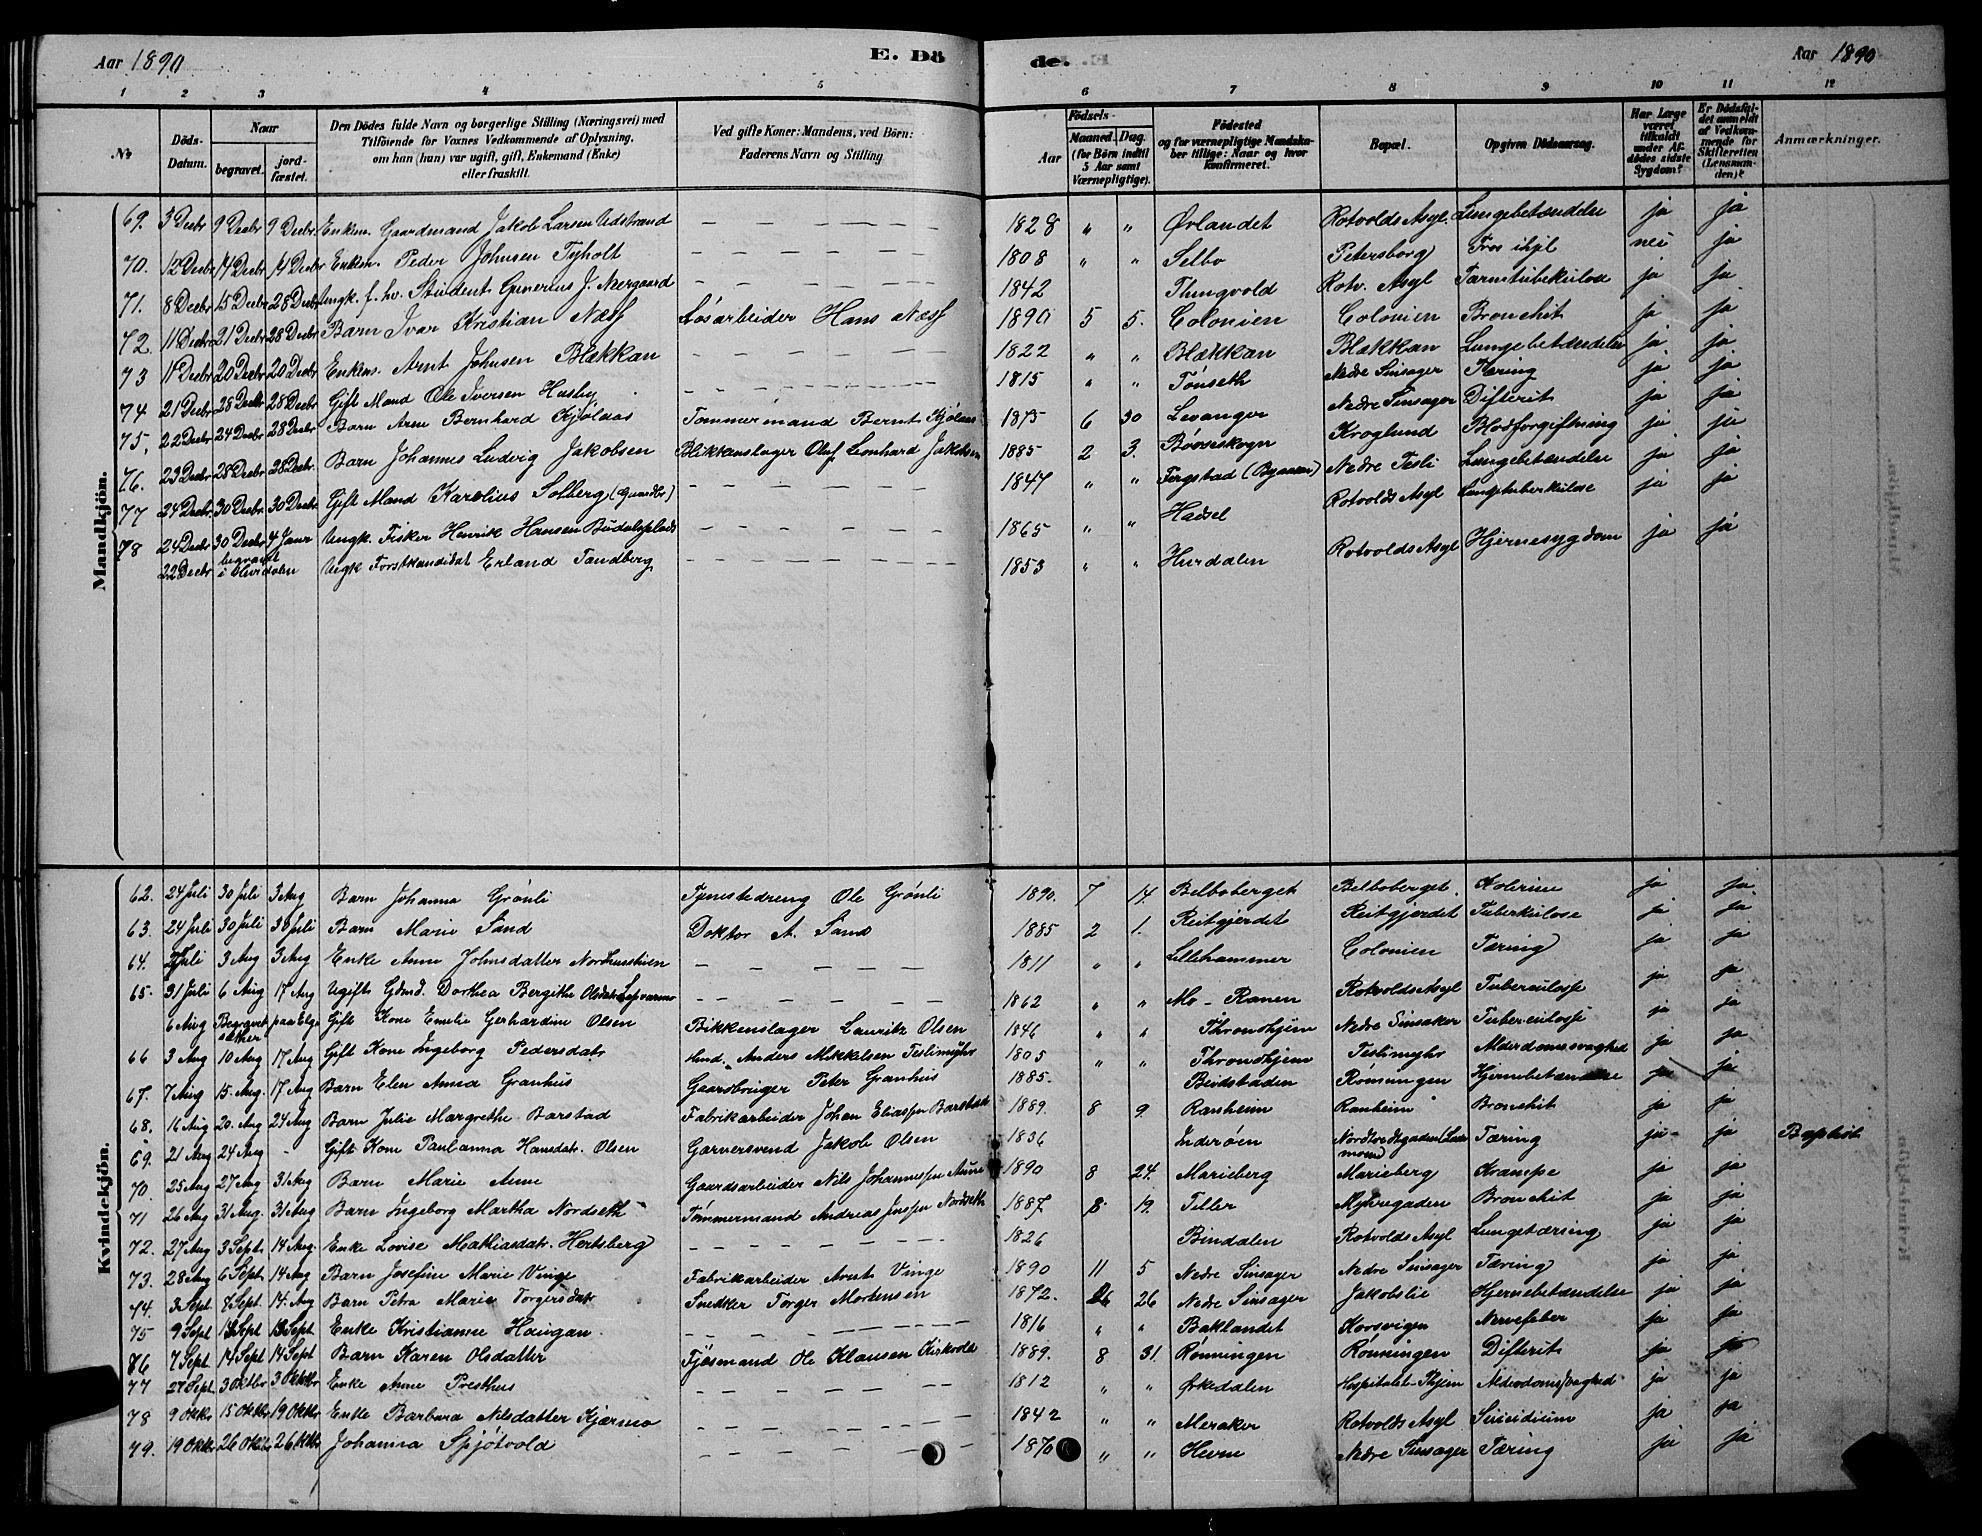 Aar 1890 E. Dö de. Aar 1890
1 2 3 4 5 6 7 8 9 10 11 12
No Döds-Datum. Naar begravet. jordfæstet. Den Dödes fulde Navn og borgerlige Stilling (Næringsvei) med Tilföiende for Voxnes Vedkommende af Oplysning, om han (hun) var ugift, gift, Enkemand (Enke) eller fraskilt. Ved gifte Koner: Mandens, ved Börn: Faderens Navn og Stilling Födsels- Aar Maaned. Dag. (for Börn indtil 5 Aar samt Værnepligtige). Födested og for værnepligtige Mandskaber tillige: Naar og hvor konfirmeret. Bopæl. Opgiven Dödsaarsag. Har Læge været tilkaldt under Afdödes sidste Sygdom? Er Dödsfaldet anmeldt af Vedkommende for Skifteretten (Lensmanden)? Anmærkninger.
Mandkjön.
69. 3 Decbr 9 Decbr 9 Decbr. Enkem. Gaardmand Jakob Larsen Udstrand — — — 1828 " " Ørlandet Rotvolds Asyl. Lungebetændelse ja ja
70. 12 Decbr 14 Decbr 14 Decbr Enkem. Peder Johnsen Tyholt — — — 1808 " " Selbo Petersborg Fros ihjel nei ja
71. 8 Decbr 15 Decbr 28 Decbr Ungk. f. hv. Student Generius J. Neergaard — — — 1842 Thingvold Rotv. Asyl Tarmtuberkulose ja ja
72. 11 Decbr 21 Decbr 28 Decbr Barn Ivar Kristian Næss Løsarbeider Hans Næss 1890 5 5. Colonien Colonien Bronchit ja ja
73 11 Decbr 20 Decbr 20 Decbr Enkem. Arnt Johnsen Blækkan — — — 1822 " " Blækkan Blækkan Lungebetændelse ja ja
74 21 Decbr 28 Decbr 28 Decbr Gift Mand Ole Iversen Husby — — — 1815 " " Tønseth Nedre Sinsager Tæring ja ja
75, 22 Decbr 24 Decbr 28 Decbr Barn Arne Bernhard Kjølaas Tømmermand Bernt Kjølaas 1875 6 30 Levanger Nedre Sinsager Difterit ja ja
76. 23 Decbr 28 Decbr 28 Decbr. Barn Johannes Ludvig Jakobsen Blikkenslager Oluf Leonhard Jakobsen 1885 2 3. Kroglund Blodforgiftning ja ja
77 24 Decbr. 30 Decbr 30 Decbr Gift Mand Karolius Solberg (Gaardbr) — — — 1847 " " Nedre Tesli Lungebetændelse ja ja
78 24 Decbr 30 Decbr 4 Janr Ungk. Fisker Henrik Hansen — — — 1865 " " Hadsel Rotvolds Asyl Lungetuberkulose ja ja
22 Decbr begravet i Hurdalen Ungk Forstkandidat Erland Tandberg 1853 " " Hurdalen Rotvolds Asyl Hjernesygdom ja ja
Kvindekjön.
62. 24 Juli 30 Juli 3 Aug Barn Johanna Grønli Tjenestedreng Ole Grønli 1890. 7 14. Belboberget Belboberget. Kolerine ja ja
63. 24 Juli 30 Juli 30 Juli Barn Marie Sand Doktor A. Sand 1885 2 1. Reitgjerdet Reitgjerdet Tuberkulose ja ja
64. Juli 3 Aug 3 Aug Enke Anne Johnsdatter — — — 1811 " " Lillehammer Colonien Tæring ja ja
65. 31 Juli 6 Aug 17 Aug Ugift Dorthea Bergithe — — — 1862 " " Mo - Ranen Rotvolds Asyl Tuberculose ja ja
6 Aug Begravet paa Elge sæter Gift Kone Emelie Gerhardine Olsen Blikkenslager Lauritz Olsen 1846 " " Throndhjem Nedre Sinsaker Tuberculose ja ja
66 3 Aug 10 Aug 17 Aug Gift Kone Ingeborg Pedersdatr Hmd. Anders Mikkelsen Teslimyhr 1805 " " Throndhjem Teslimyhr Alderdomssvaghed ja ja
67. 7 Aug 15. Aug. 17 Aug Barn Elen Anna Granhus Gaardbruger Peter Granhus 1885. Beidstaden Rønningen Hjernebetændelse ja ja
68. 16 Aug 20. Aug 24 Aug Barn Julie Margrethe Barstad Fabrikarbeider Johan Eliassen Barstad 1889. 8 9. Ranheim Ranheim Bronchit ja ja
69. 21 Aug 24 Aug - Gift Kone Paulanna Hansdatr. Olsen Garversvend Jakob Olsen 1836 Inderøen Tæring ja ja Baptist
70. 25 Aug 27 Aug 31 Aug Barn Marie Aune Gaardsarbeider Nils Johannessen Aune 1890 8 24. Marieberg Marieberg Krampe ja ja
71 26 Aug 31 Aug. 31 Aug. Barn Ingeborg Martha Nordseth Tømmermand Andreas Jensen Nordseth 1887 8 19. Tiller Myhregaden Bronchit ja ja
72. 27 Aug 3 Sept. 14 Aug. Enke Lovise Mathiasdatr. Hertsberg — — — 1826 Bindalen Rotvolds Asyl Lungetæring ja ja
73. 28 Aug 6 Sept. 14 Aug Barn Josefine Marie Vinge Fabrikarbeider Arnt Vinge 1890 11 5 Nedre Sinsager Nedre Sinsager Tæring ja ja
74. 3 Sept 8 Sept. 14. Aug Barn Petra Marie Torgersdatr Snedker Torger Mortensen 1872. 26 Nedre Sinsager Jakobslie Hjernebetændelse ja ja
75 9 Sept 13 Sept 13 Sept. Enke Kristianne Haugan. — — — 1816 " " Baklandet Korsvigen Nervefeber ja ja
86 7 Sept 14 Sept 14 Sept Barn Karen Olsdatter Fjøsmand Ole Klausen Kirkvold 1889. 8 31. Rønningen Rønningen Difterit ja ja
77 27 Sept. 3 Oktbr 3 Oktbr Enke Anne Presthus — — — 1812 " " Ørkedalen Hospitalet Thjem Alderdomssvaghed ja ja
78 9 Oktbr 15 Oktbr 19 Oktbr Enke Barbara Nilsdatter Kjærmo — — — 1842 " " Meraker Rotvolds Asyl Suicidium ja ja
79. 19 Oktbr 26 Oktbr 26 Oktbr Johanna Spjøtvold — — — 1870 " " Hevne Nedre Sinsager Tæring ja ja